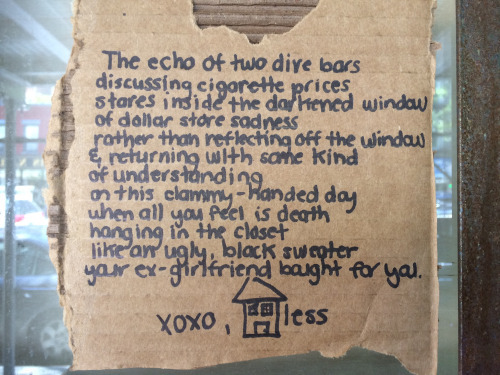 The echo of two dive bars
discussing cigarette prices
stares inside the darkened window
of dollar store sadness
rather than reflecting off the window
& returning with some kind
of understanding
on this clammy-handed day
when all you feel is death
hanging in the closet
like an ugly, black sweater
your ex-girlfriend bought for you.
xoxo, less